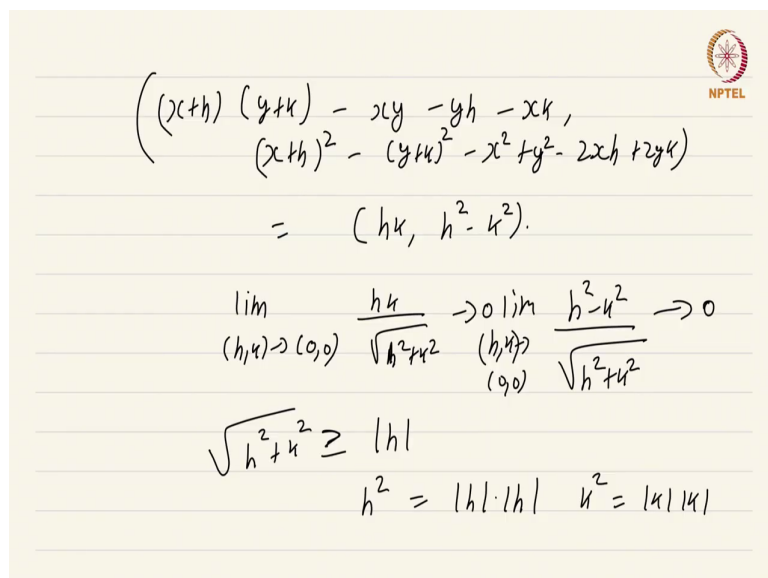 NPTEL
((x+h) (y+k) - xy - yh - xk,
(x+h)² - (y+k)² - x² + y² - 2xh + 2yk)
= (hk, h² - k²).
lim (h,k)→(0,0) hk/√(h²+k²) →0 lim (h,k)→(0,0) (h²-k²)/√(h²+k²) →0
√(h²+k²) ≥ |h|
h² = |h|·|h| k² = |k||k|